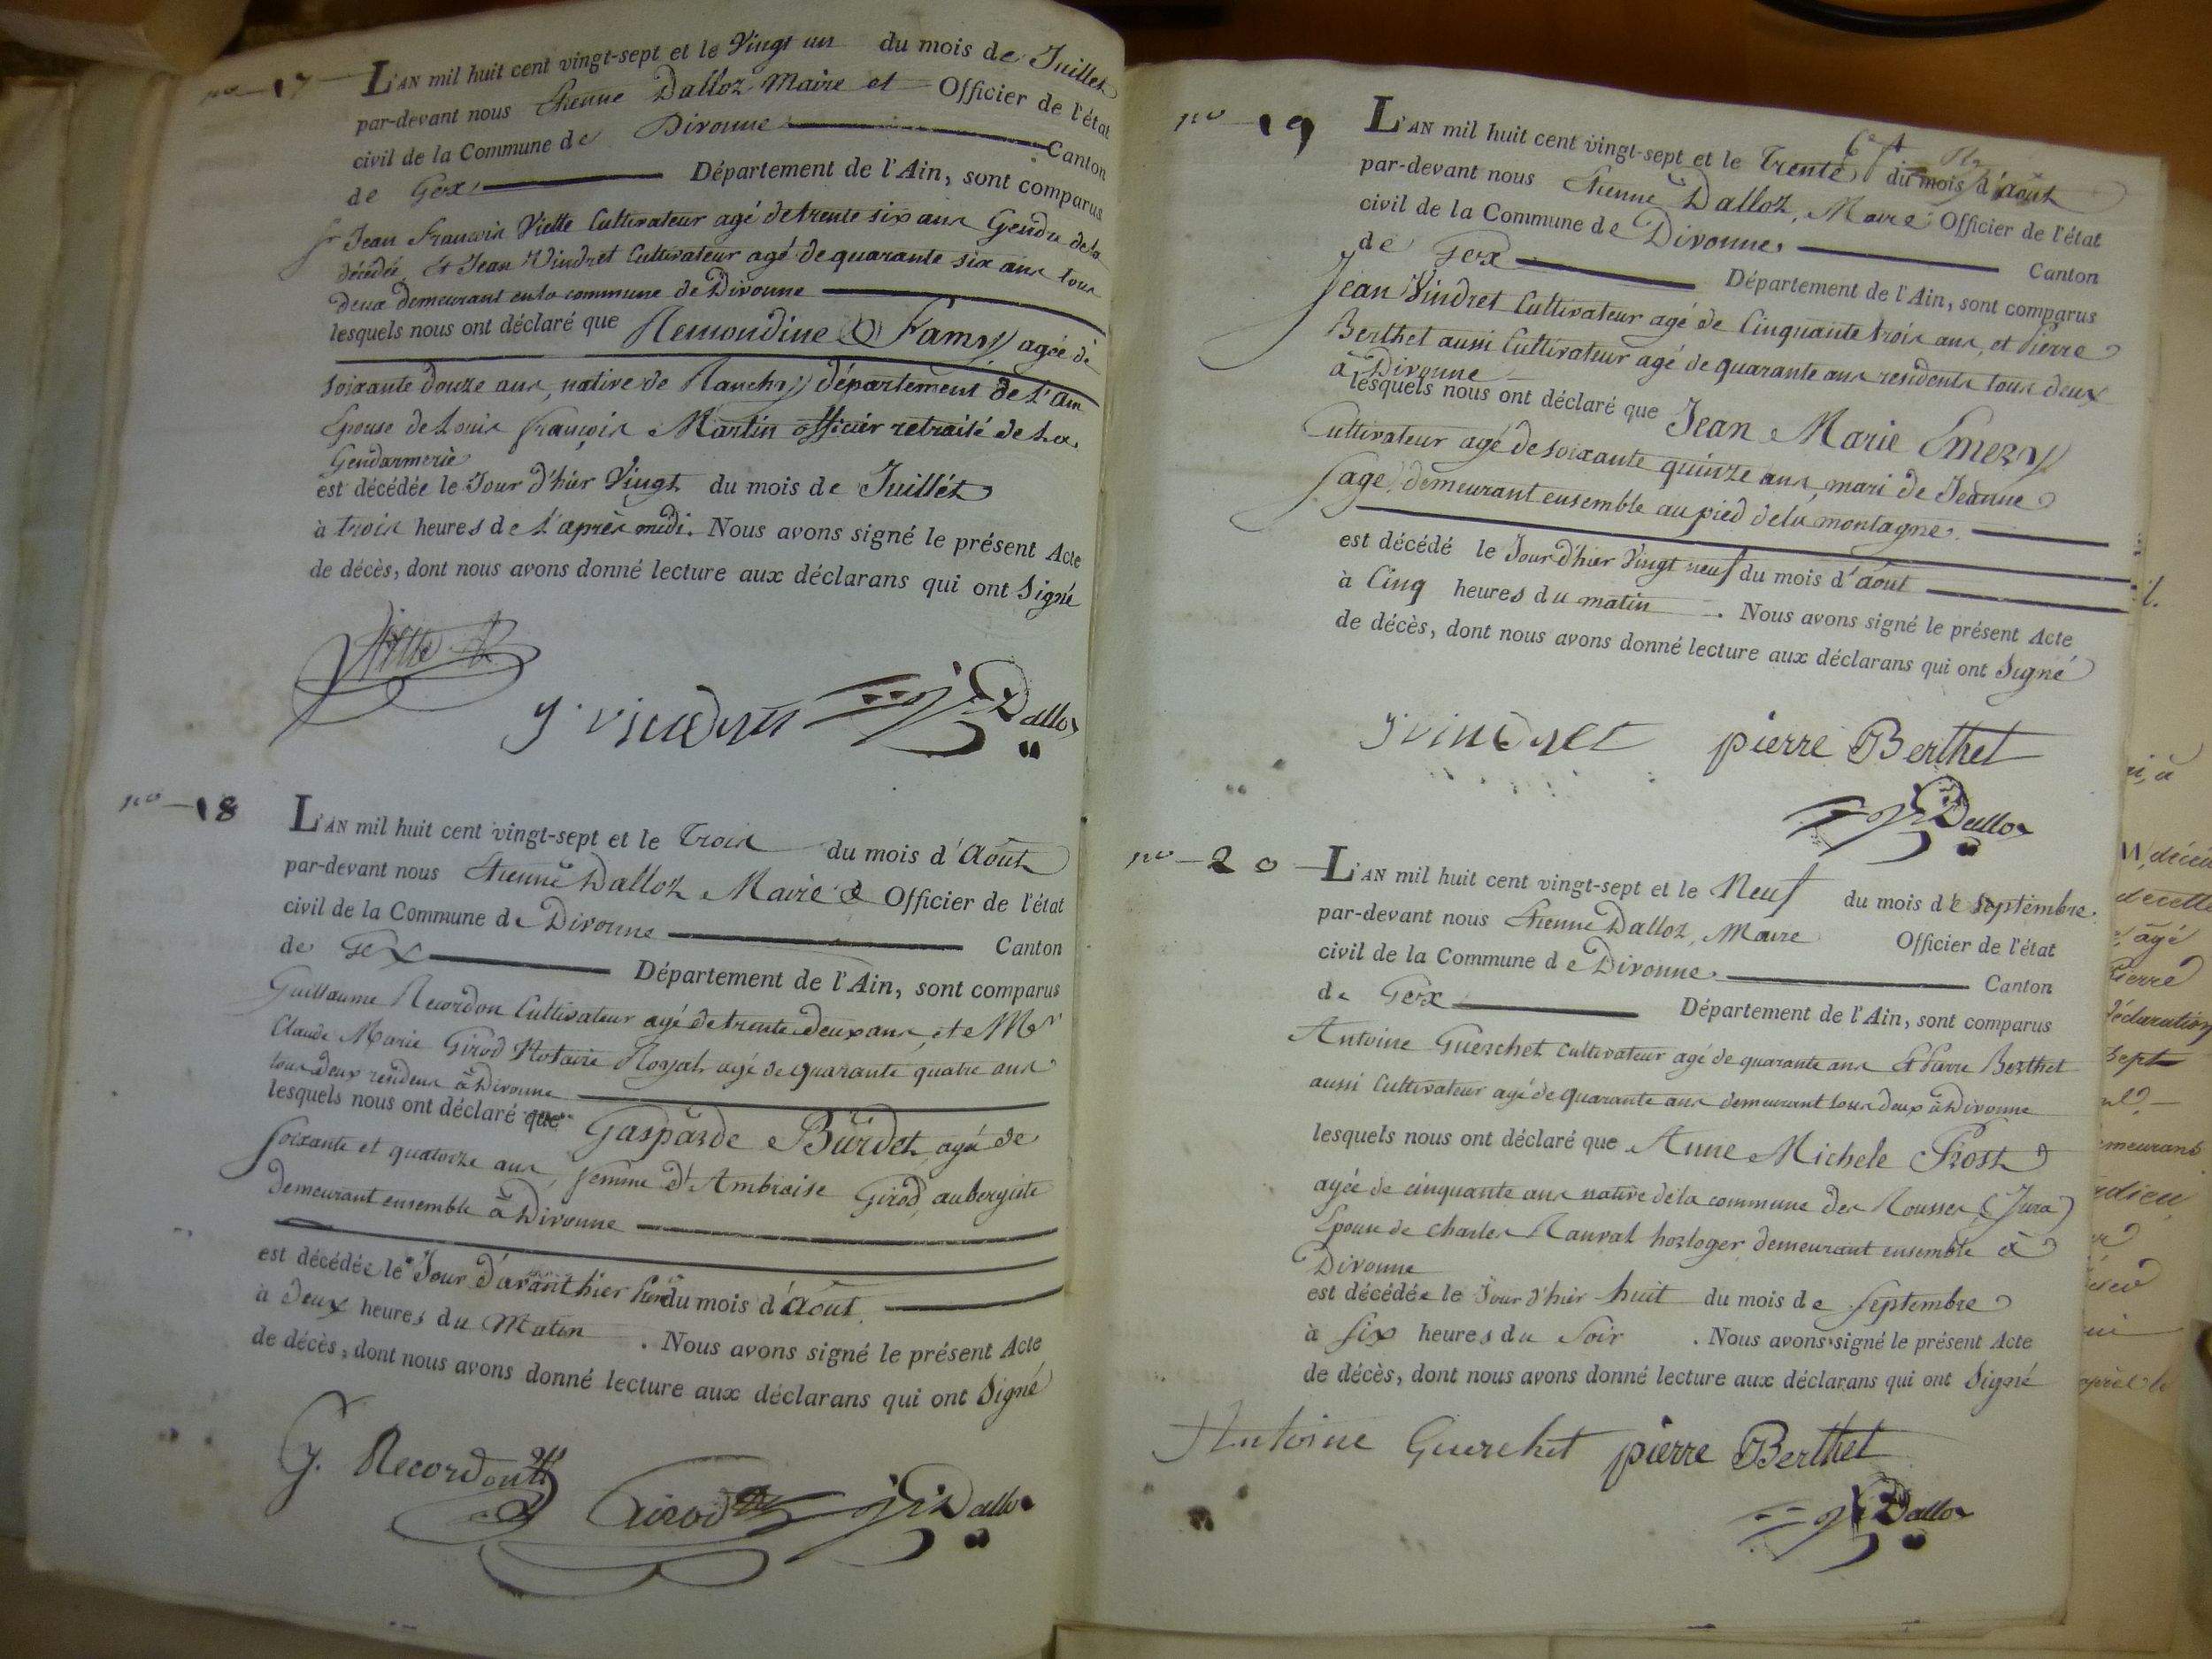 no 17
L'AN mil huit cent vingt-sept et le Vingt un du mois de Juillet
par-devant nous Etienne Dalloz Maire et Officier de l'état
civil de la Commune de Divonne Canton
de Gex Département de l'Ain, sont comparus
Sr Jean francois Viette Cultivateur agé de trente six ans Gendre de la
décédée Et Jean Vindret Cultivateur agé de quarante six ans tous
deux demeurant en la commune de Divonne
lesquels nous ont déclaré que Remondine Famy agée de
soixante douze ans, native de Ranchy département de L'ain
Epouse de Louis françois Martin officier retraité de La
Gendarmerie
est décédée le Jour d'hier Vingt du mois de Juillet
à trois heures de L'après midi. Nous avons signé le présent Acte
de décès, dont nous avons donné lecture aux déclarans qui ont Signé
J. vindret Dalloz
no 18
L'AN mil huit cent vingt-sept et le Trois du mois d'Août
par-devant nous Etienne Dalloz Maire & Officier de l'état
civil de la Commune de Divonne Canton
de Gex Département de l'Ain, sont comparus
Guillaume Recordon Cultivateur agé de trente deux ans, et Mr
Claude Marie Girod Notaire Royal agé de quarante quatre ans
tous deux à Divonne
lesquels nous ont déclaré que Gasparde Burdet, agé de
soixante et quatorze ans, femme d'Ambroise Girod, aubergiste
demeurant ensemble à Divonne
est décédée le Jour d'avant hier du mois d'Août
à Deux heures du Matin. Nous avons signé le présent Acte
de décès, dont nous avons donné lecture aux déclarans qui ont Signé
G. Recordon Girod Dalloz
no 19
L'AN mil huit cent vingt-sept et le Trente du mois d'Août
par-devant nous Etienne Dalloz, Maire Officier de l'état
civil de la Commune de Divonne Canton
de Gex Département de l'Ain, sont comparus
Jean Vindret Cultivateur agé de Cinquante trois ans, et Pierre
Berthet aussi Cultivateur agé de quarante ans residents tous deux
à Divonne
lesquels nous ont déclaré que Jean Marie Emery
Cultivateur agé de soixante quinze ans, mari de Jeanne
Sage, demeurant ensemble au pied de la montagne
est décédé le Jour d'hier Vingt neuf du mois d'août
à Cinq heures du matin. Nous avons signé le présent Acte
de décès, dont nous avons donné lecture aux déclarans qui ont Signé
J vindret pierre Berthet
Dalloz
no 20
L'AN mil huit cent vingt-sept et le Neuf du mois de septembre
par-devant nous Etienne Dalloz, Maire Officier de l'état
civil de la Commune de Divonne Canton
de Gex Département de l'Ain, sont comparus
Antoine Guerchet Cultivateur agé de quarante ans Et Pierre Berthet
aussi Cultivateur agé de quarante ans demeurant tous deux à Divonne
lesquels nous ont déclaré que Anne Michele Prost
agée de cinquante ans native de la commune des Rousses (Jura)
Epouse de Charles horloger demeurant ensemble à
Divonne
est décédée le Jour d'hier huit du mois de septembre
à six heures du Soir. Nous avons signé le présent Acte
de décès, dont nous avons donné lecture aux déclarans qui ont Signé
Antoine Guerchet pierre Berthet
Dalloz